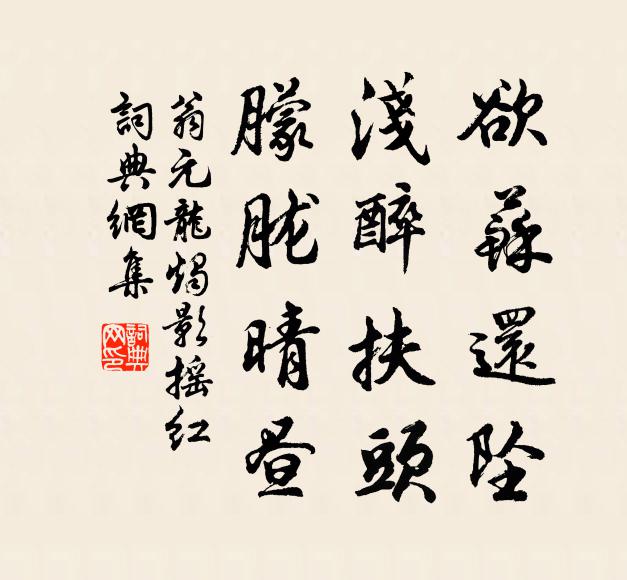 欲蘇還墜
淺醉扶頭
朦朧晴晝
翁元龍燭影搖紅
詞典網集
詞典網印